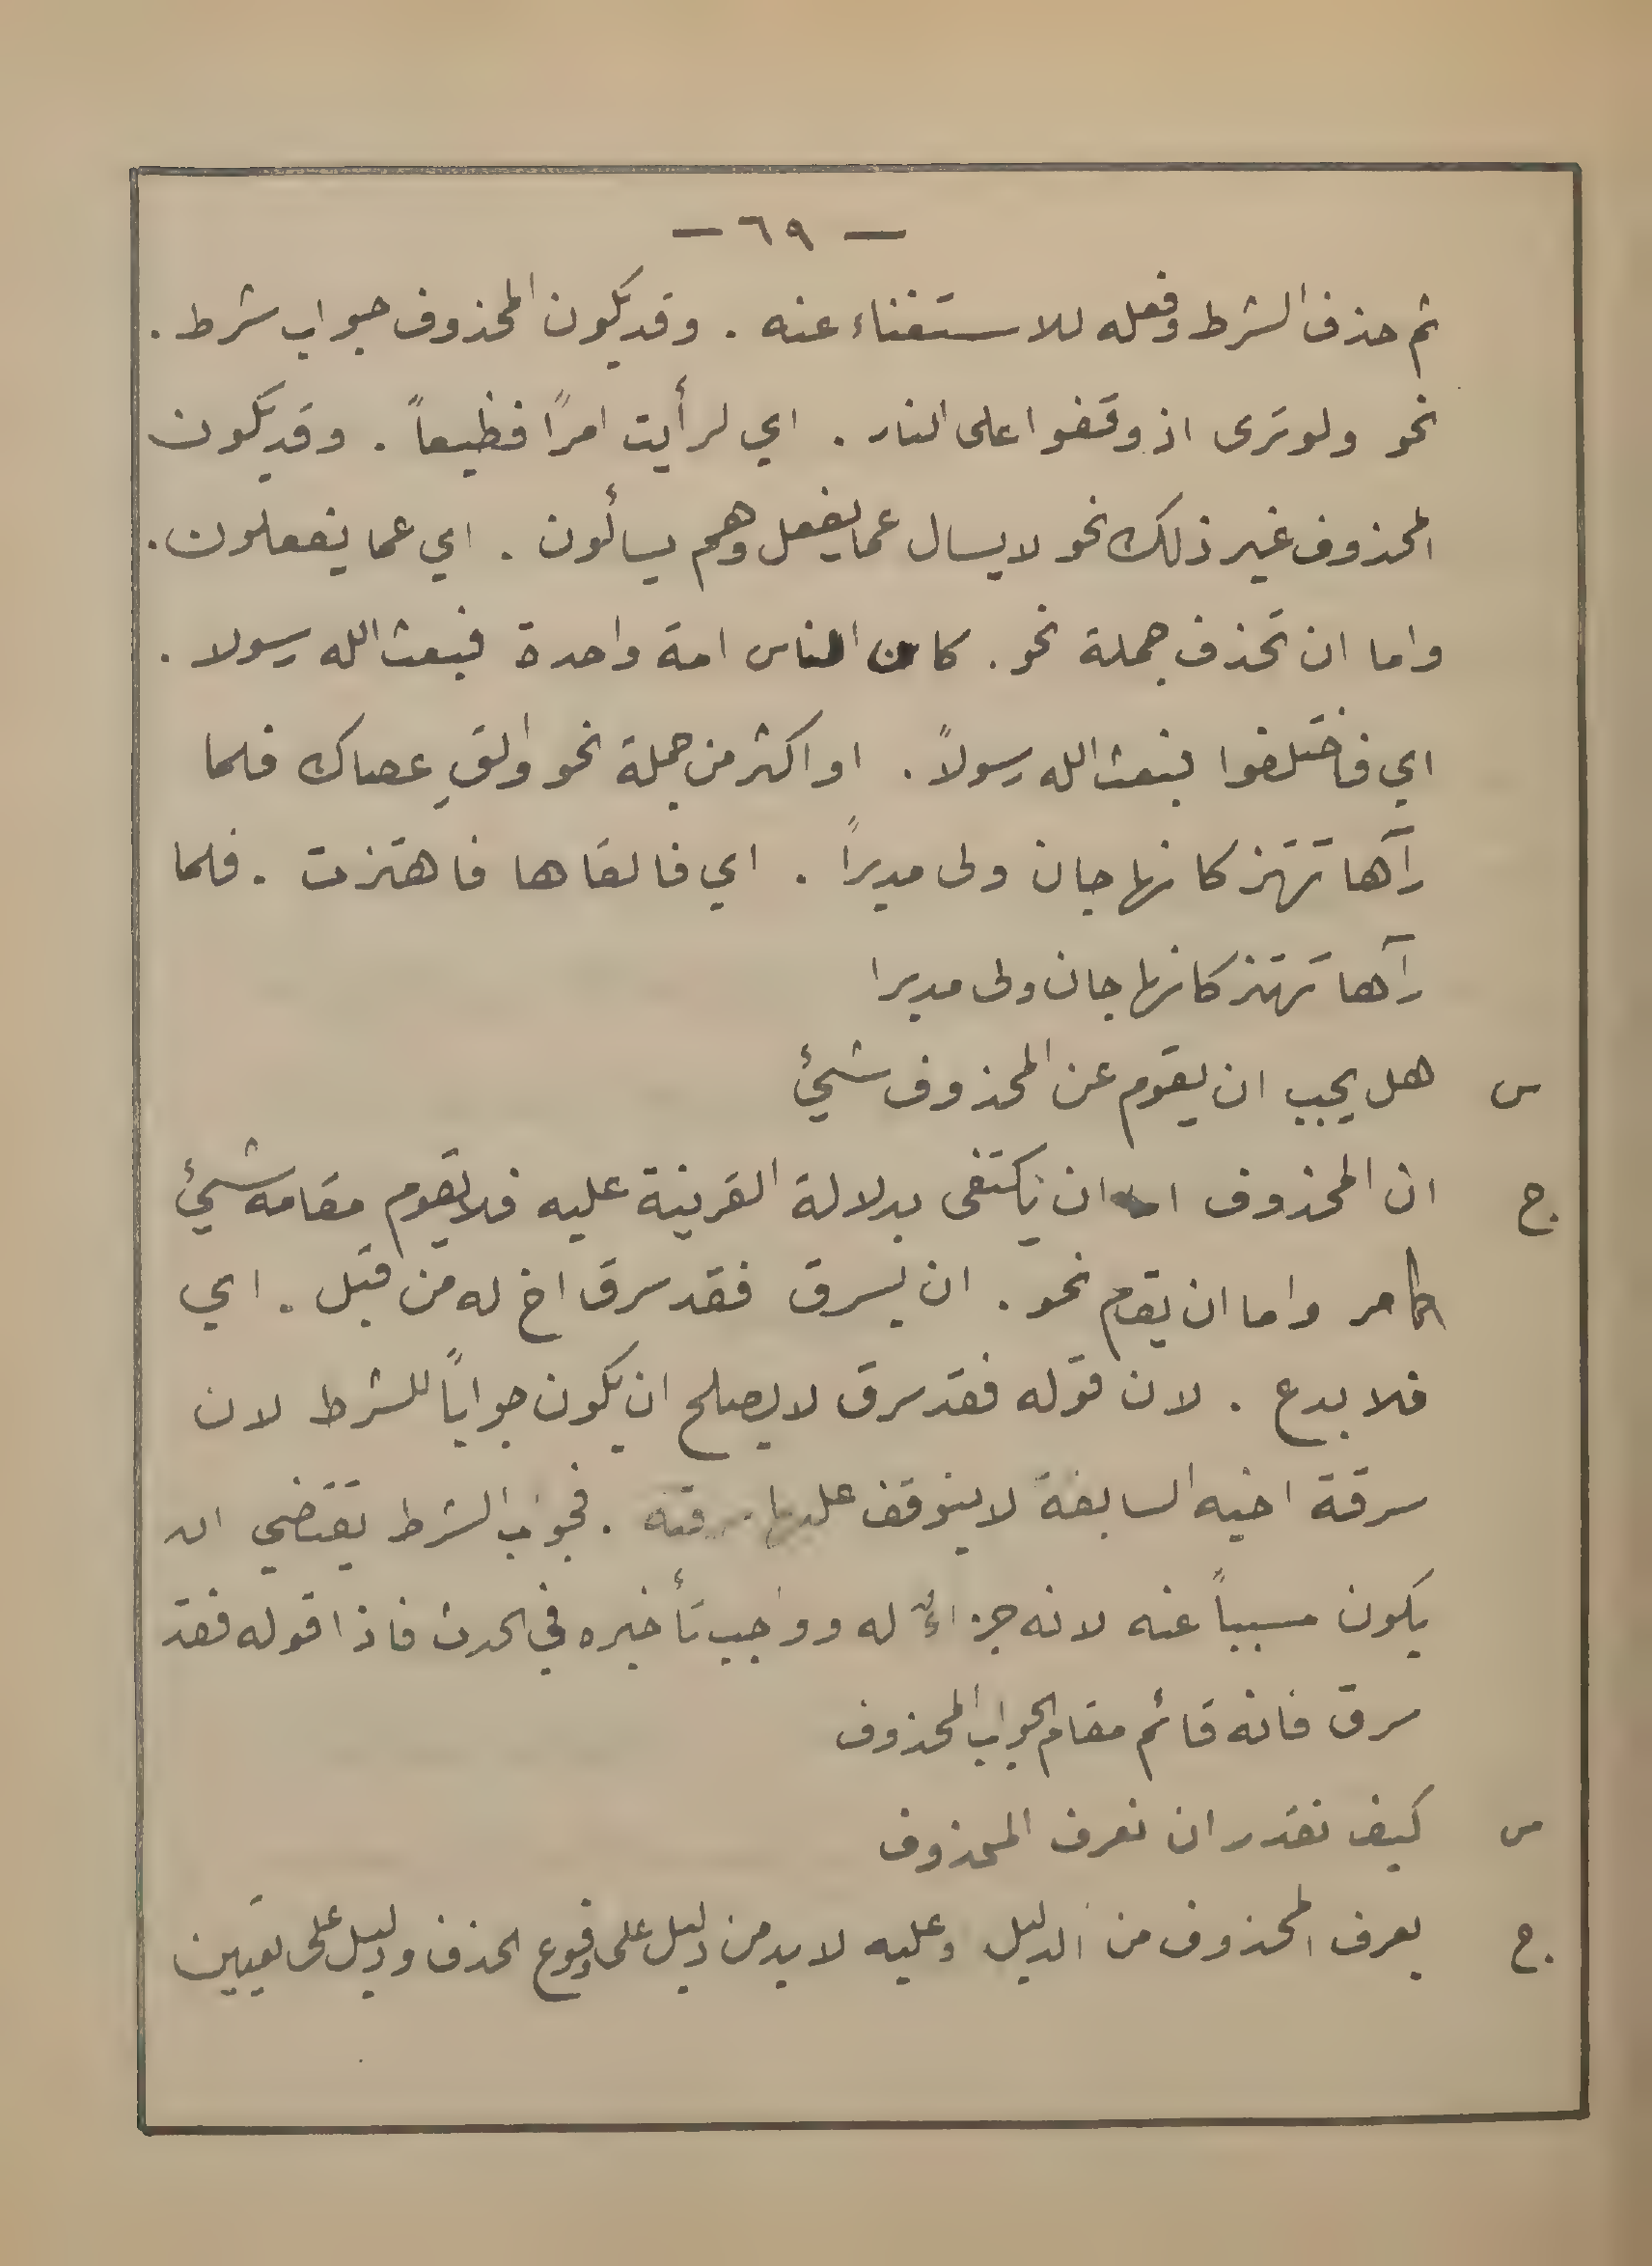 — ٦٩ —
ثم حذف الشرط وفعله للاستغناء عنه . وقد يكون المحذوف جواب شرط .
نحو ولو ترى اذ وقفوا على النار . اي لرأيت امرًا فظيعاً . وقد يكون
المحذوف غير ذلك نحو لا يسال عما يفعل وهم يسألون . اي عما يفعلون .
واما ان تحذف جملة نحو . كان الناس امة واحدة فبعث الله رسولا .
اي فاختلفوا فبعث الله رسولاً . او اكثر من جملة نحو والقِ عصاك فلما
رآها تهتز كانها جان ولى مدبراً . اي فالقاها فاهتزت . فلما
رآها تهتز كانها جان ولى مدبرا
س هل يجب ان يقوم عن المحذوف شيئ
ج ان المحذوف اما ان يكتفى بدلالة القرينة عليه فلا يقوم مقامه شيئ
كما مر واما ان يقام نحو . ان يسرق فقد سرق اخ له من قبل . اي
فلا بدع . لان قوله فقد سرق لا يصلح ان يكون جواباً للشرط لان
سرقة اخيه السابقة لا يتوقف عليها سرقته . فجواب الشرط يقتضي ان
يكون مسبباً عنه لانه جزاءٌ له وواجب تأخيره في الحدث فاذا قوله فقد
سرق فانه قائم مقام الجواب المحذوف
س كيف نقدر ان نعرف المحذوف
ج يعرف المحذوف من الدليل وعليه لا بد من دليل على وقوع الحذف ودليل على تعيين